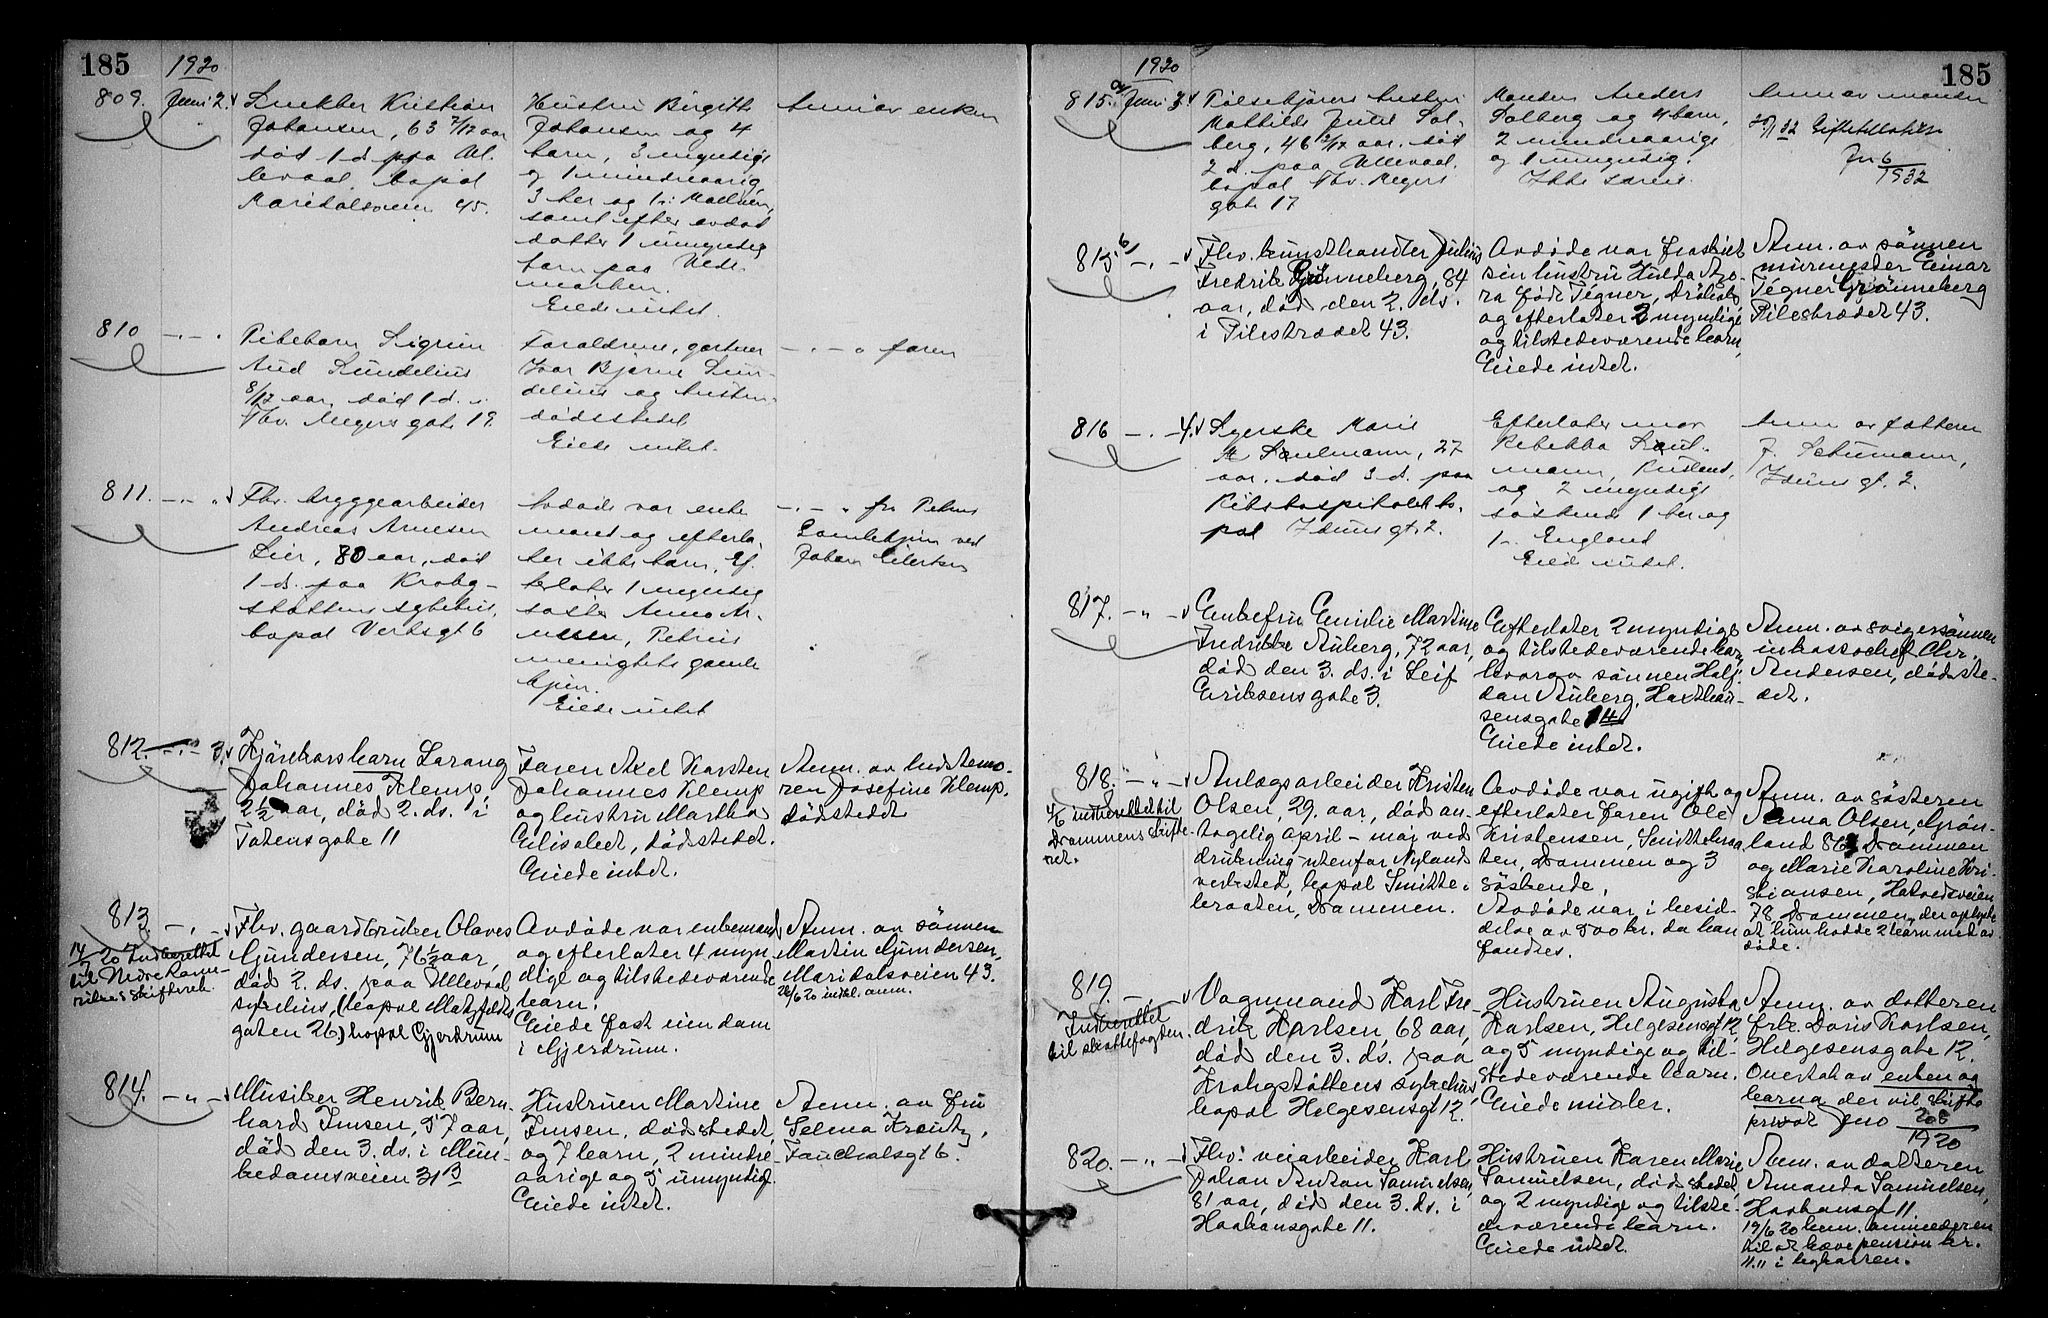 185
1920
809. Juni 2. Snekker Kristian
Johansen, 63 7/12 aar
død 1 d. paa Ul-
levaal, bopæl
Maridalsveien 45.
Hustru Birgitte
Johansen og 4
barn, 3 myndige
og 1 mindreaarig
3 her og 1 i
samt efter avdød
datter 1 umyndig
barn paa Hede-
marken.
Eiede intet.
Anm av enken
810 -"- Pikebarn Sigrun
Aud Lundelius
8/12 aar, død 1 d. i
Thv. Meyers gate 19.
Forældrene, gartner
Ivar Bjarne Lun-
delius og hustru,
dødsstedet
Eiede intet.
-"- faren
811. -"- Fhv. bryggearbeider
Andreas Arnesen
Lier, 80 aar, død
1 d. paa Krohg-
støttens sykehus,
bopæl Verksgt 6
Avdøde var enke
mand og efterla-
ter ikke barn. Ef-
terlater 1 myndig
søster Anna Ar-
nesen, Petrus
menighets gamle
hjem.
Eiede intet
-"- fra Petrus
Gamlehjem ved
Johan Eilertsen
812. -"- 3. Kjørekarsbarn Sarang
Johannes Klemp
2 1/2 aar, død 2. ds. i
Totensgate 11
Faren Axel Karsten
Johannes Klemp
og hustru Martha
Elisabet, dødsstedet.
Eiede intet.
Anm. av bedstemo-
ren Josefine Klemp,
dødsstedet
813. -"- Fhv. gaardbruker Olaves
Gundersen, 76 1/2 aar,
død 2. ds. paa Ullevaal
sykehus, (bopæl
gaten 26.) bopæl Gjerdrum
14/7 20 Indberettet
til Nedre Rome-
rikes skifteret.
Avdøde var enkemand
og efterlater 4 myn-
dige og tilstedeværende
barn.
Eiede fast eiendom
i Gjerdrum.
Anm. av sønnen
Martin Gundersen,
Maridalsveien 43.
26/6 20 indkl. anm.
814. -"- Musiker Henrik Bern-
hard Imsen, 57 aar,
død den 3. ds. i Mun-
kedamsveien 31 B
Hustruen Martine
Imsen, dødsstedet,
og 7 barn, 2 mindre-
aarige og 5 umyndig.
Eiede intet.
Anm. av fru
Selma Krentz,
Fauchalsgt 6.
185
1920
815. a Juni 3. hustru
Mathilde Julie Sol-
berg, 46 2/12 aar. død
2 d. paa Ullevaal.
bopæl Thv. Meyers
gate 17
Manden Anders
Solberg og 4 barn,
2 mindreaarige
og 1 umyndig.
Anm av manden
Jnr 6/1932
815. b -"- Fhv. kunsthandler Julius
Fredrik Grønneberg, 84
aar, død den 2. ds.
i Pilestrædet 43.
Avdøde var fraskilt
sin hustru Hulda
født Tegner, Drøbak,
og efterlater 2 myndige
og tilstedeværende barn,
Eiede intet.
Anm. av sønnen
murmester Einar
Tegner Grønneberg
Pilestrædet 43.
816 -"- 4. Syerske Marie
M Saulmann, 27
aar. død 3 d. paa
Rikshospitalet bo-
pæl Idunsgt. 2.
Efterlater mor
Rebekka Saul-
mann, Rusland,
og 2 myndige
søskende 1 her og
1 i England
Eied intet.
Anm av fetteren
F. Schumann,
Iduns gt. 2.
817. -"- Enkefru Emilie Martine
Fredrikke Auberg, 72 aar,
død den 3. ds. i Leif
Eriksens gate 3.
Efterlater 2 myndige
og tilstedeværende barn,
hvorav sønnen Half-
dan Auberg, Haxthau-
sensgate
Eiede intet.
Anm. av svigersønnen
inkassochef Chr.
Andersen, dødsste-
det.
818. -"- Anlægsarbeider Kristen
Olsen, 29. aar, død an-
tagelig april - maj ved
drukning utenfor Nylands
verksted, bopæl Smitte-
braaten, Drammen.
4/6 indberettet til
Drammens skifte-
ret.
Avdøde var ugift og
efterlater faren Ole
Kristensen, Smittebraa
ten, Drammen og 3
søskende.
Avdøde var i besid-
delse av 500 kr. da han
fandtes.
Anm. av søsteren
Anna Olsen, Grøn-
land 86, Drammen
og Marie Karoline Kri-
stiansen,
78, Drammen, der oplyste
at hun hadde 2 barn med av
døde.
819. -"- Vognmand Karl Fre-
drik Karlsen, 68 aar,
død den 3. ds. paa
Krohgstøttens sykehus,
bopæl Helgesensgt 12.
Indberettet
til skattefogden.
Hustruen Augusta
Karlsen, Helgesensgt 12,
og 5 myndige og til-
stedeværende barn.
Eiede midler.
Anm. av datteren
frk. Doris Karlsen,
Helgesensgate 12.
Overtat av enken og
barna der vil skifte
privat Jno 208/1920
820. -"- Fhv. veiarbeider Karl
Johan Anton Samuelsen,
81 aar, død den 3. ds. i
Haakonsgate 11.
Hustruen Karen Marie
Samuelsen, dødsstedet,
og 2 myndige og tilste-
deværende barn.
Eiede intet.
Anm. av datteren
Amanda Samuelsen,
Haakonsgt 11.
19/6 20 bem. anmelderen
til at hæve pension kr.
11.11 i bykassen.